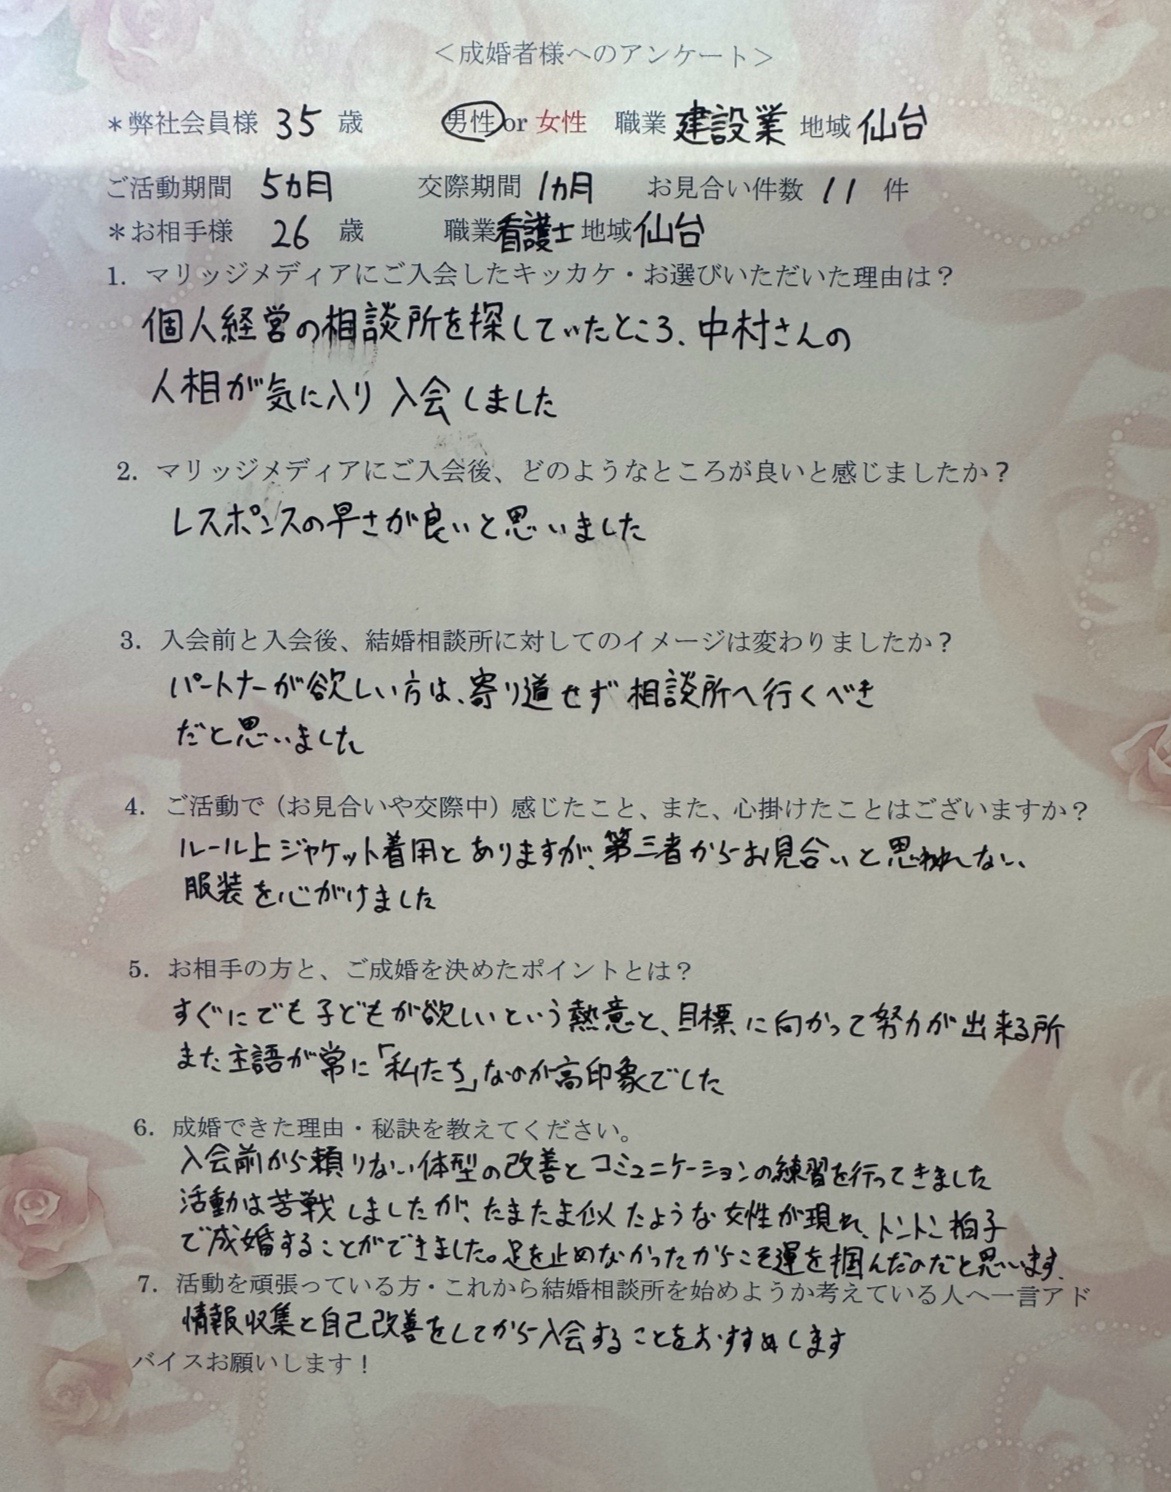 ＜成婚者様へのアンケート＞
＊弊社会員様 35 歳 男性 or 女性 職業 建設業 地域 仙台
ご活動期間 5ヵ月 交際期間 1ヵ月 お見合い件数 11 件
＊お相手様 26 歳 職業 看護士 地域 仙台
1. マリッジメディアにご入会したキッカケ・お選びいただいた理由は？
個人経営の相談所を探していたところ、中村さんの
人相が気に入り入会しました
2. マリッジメディアにご入会後、どのようなところが良いと感じましたか？
レスポンスの早さが良いと思いました
3. 入会前と入会後、結婚相談所に対してのイメージは変わりましたか？
パートナーが欲しい方は、寄り道せず相談所へ行くべき
だと思いました
4. ご活動で（お見合いや交際中）感じたこと、また、心掛けたことはございますか？
ルール上ジャケット着用とありますが、第三者からお見合いと思われない、
服装を心がけました
5. お相手の方と、ご成婚を決めたポイントとは？
すぐにでも子どもが欲しいという熱意と、目標に向かって努力が出来る所
また主語が常に「私たち」なのが高印象でした
6. 成婚できた理由・秘訣を教えてください。
入会前から頼りない体型の改善とコミュニケーションの練習を行ってきました
活動は苦戦しましたが、たまたま似たような女性が現れ、トントン拍子
で成婚することができました。足を止めなかったからこそ運を掴んだのだと思います、
7. 活動を頑張っている方・これから結婚相談所を始めようか考えている人へ一言アド
情報収集と自己改善をしてから入会することをおすすめします
バイスお願いします！